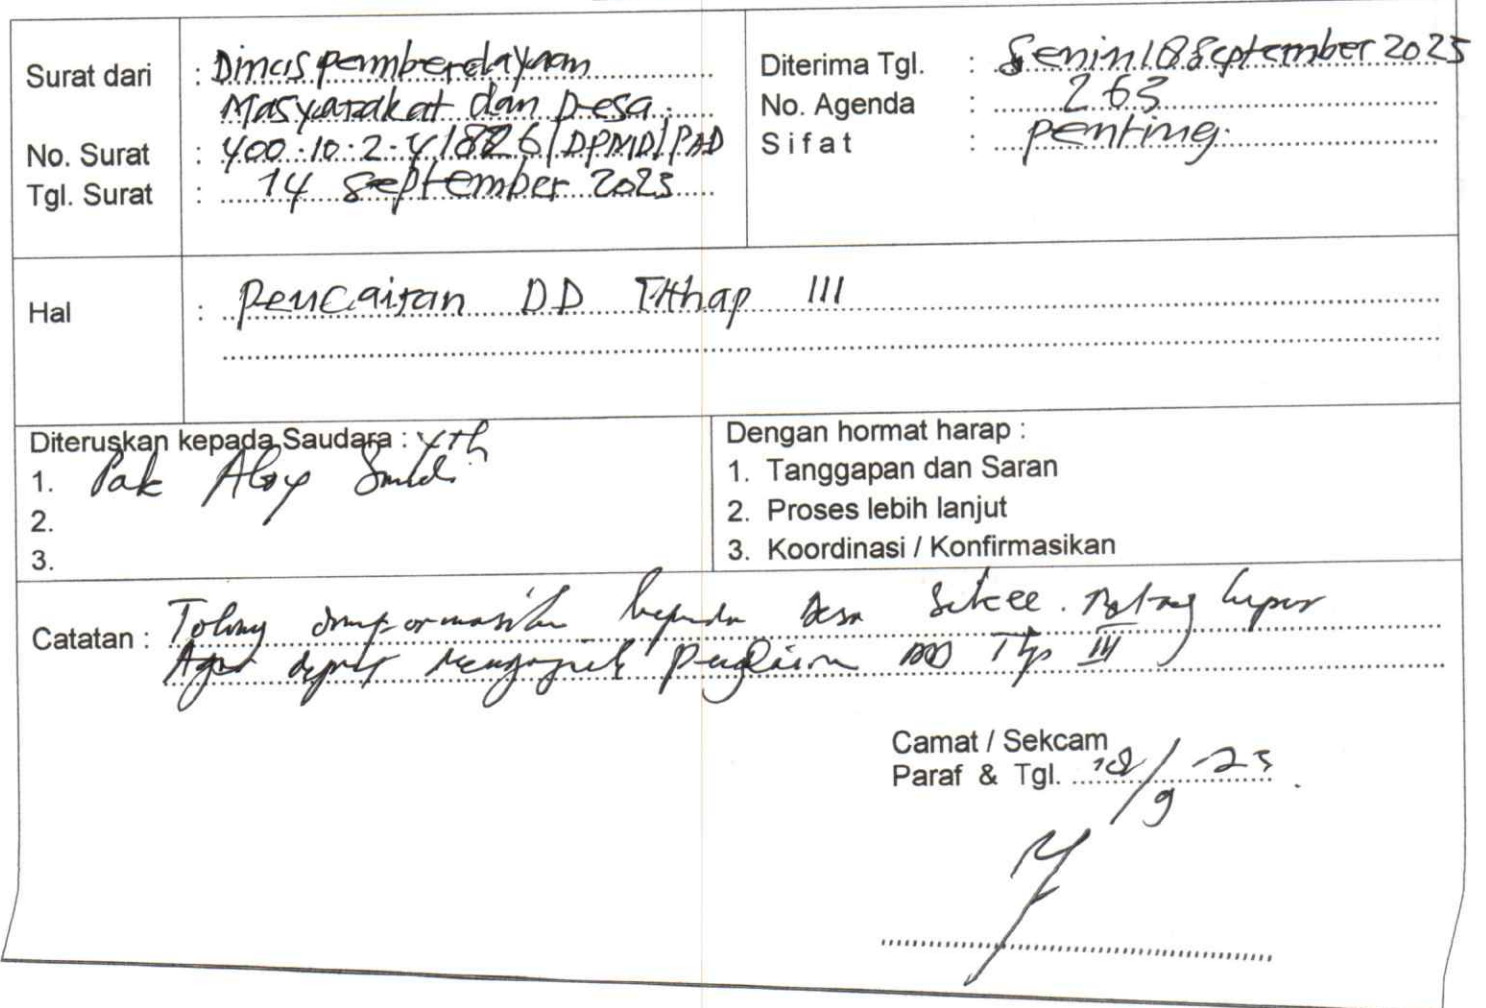 Surat dari : Dinas pemberdayaan
Masyarakat dan Desa.
No. Surat : 400.10.2.4/1826/DPMD/PAD
Tgl. Surat : 14 September 2023
Diterima Tgl. : Senin 18 September 2023
No. Agenda : 263
Sifat : penting.
Hal : Pencairan DD Tahap III
Diteruskan kepada Saudara : Yth
1. Pak Aloy
2.
3.
Dengan hormat harap :
1. Tanggapan dan Saran
2. Proses lebih lanjut
3. Koordinasi / Konfirmasikan
Catatan : Tolong kepada Desa
Agar III
Camat / Sekcam
Paraf & Tgl. 18/9-23